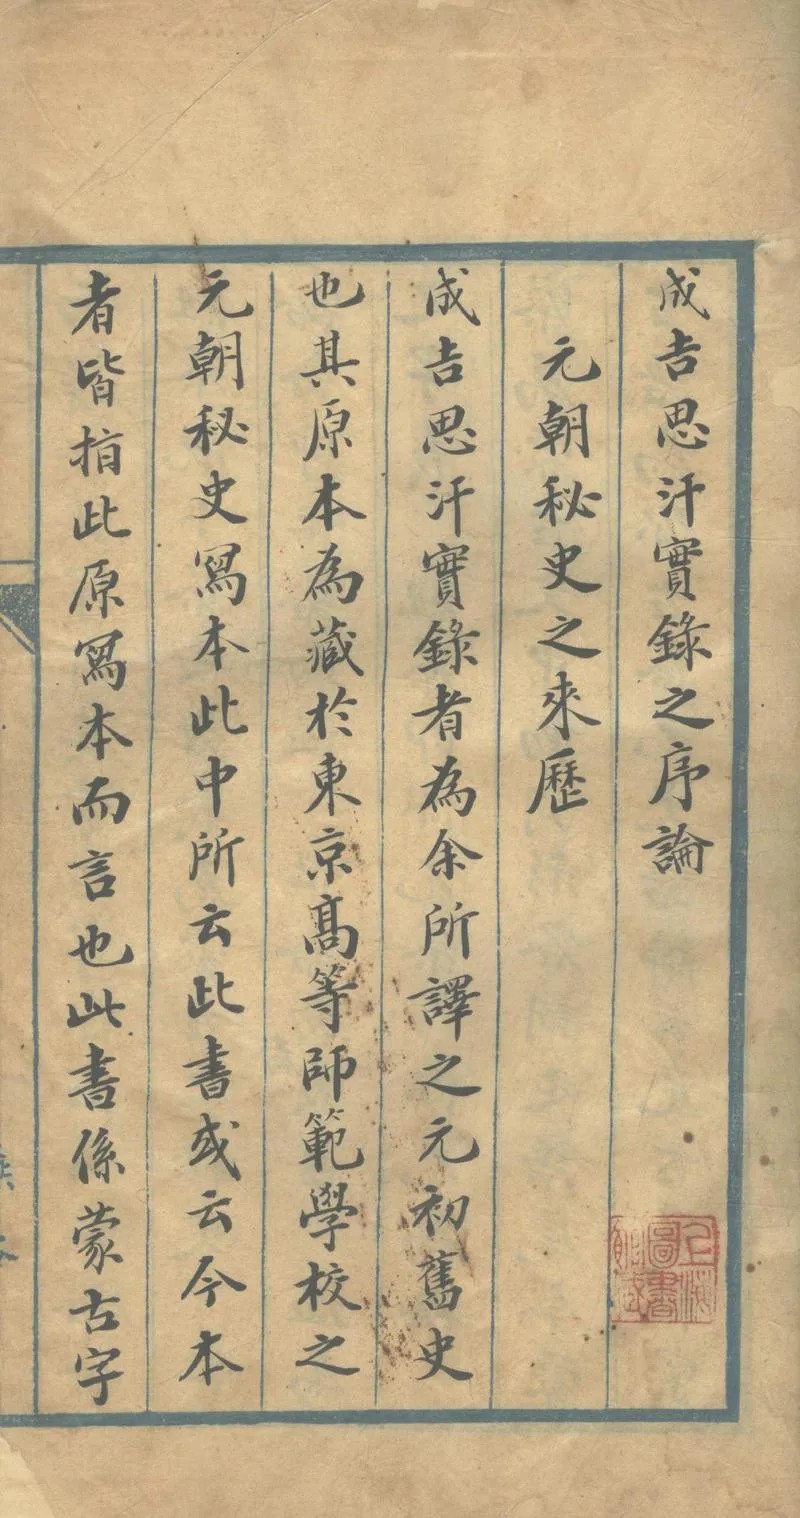 成吉思汗實錄之序論
元朝秘史之來歷
成吉思汗實錄者為余所譯之元初舊史
也其原本為藏於東京高等師範學校之
元朝秘史寫本此中所云此書或云今本
者皆指此原寫本而言也此書係蒙古字
上海圖書館藏